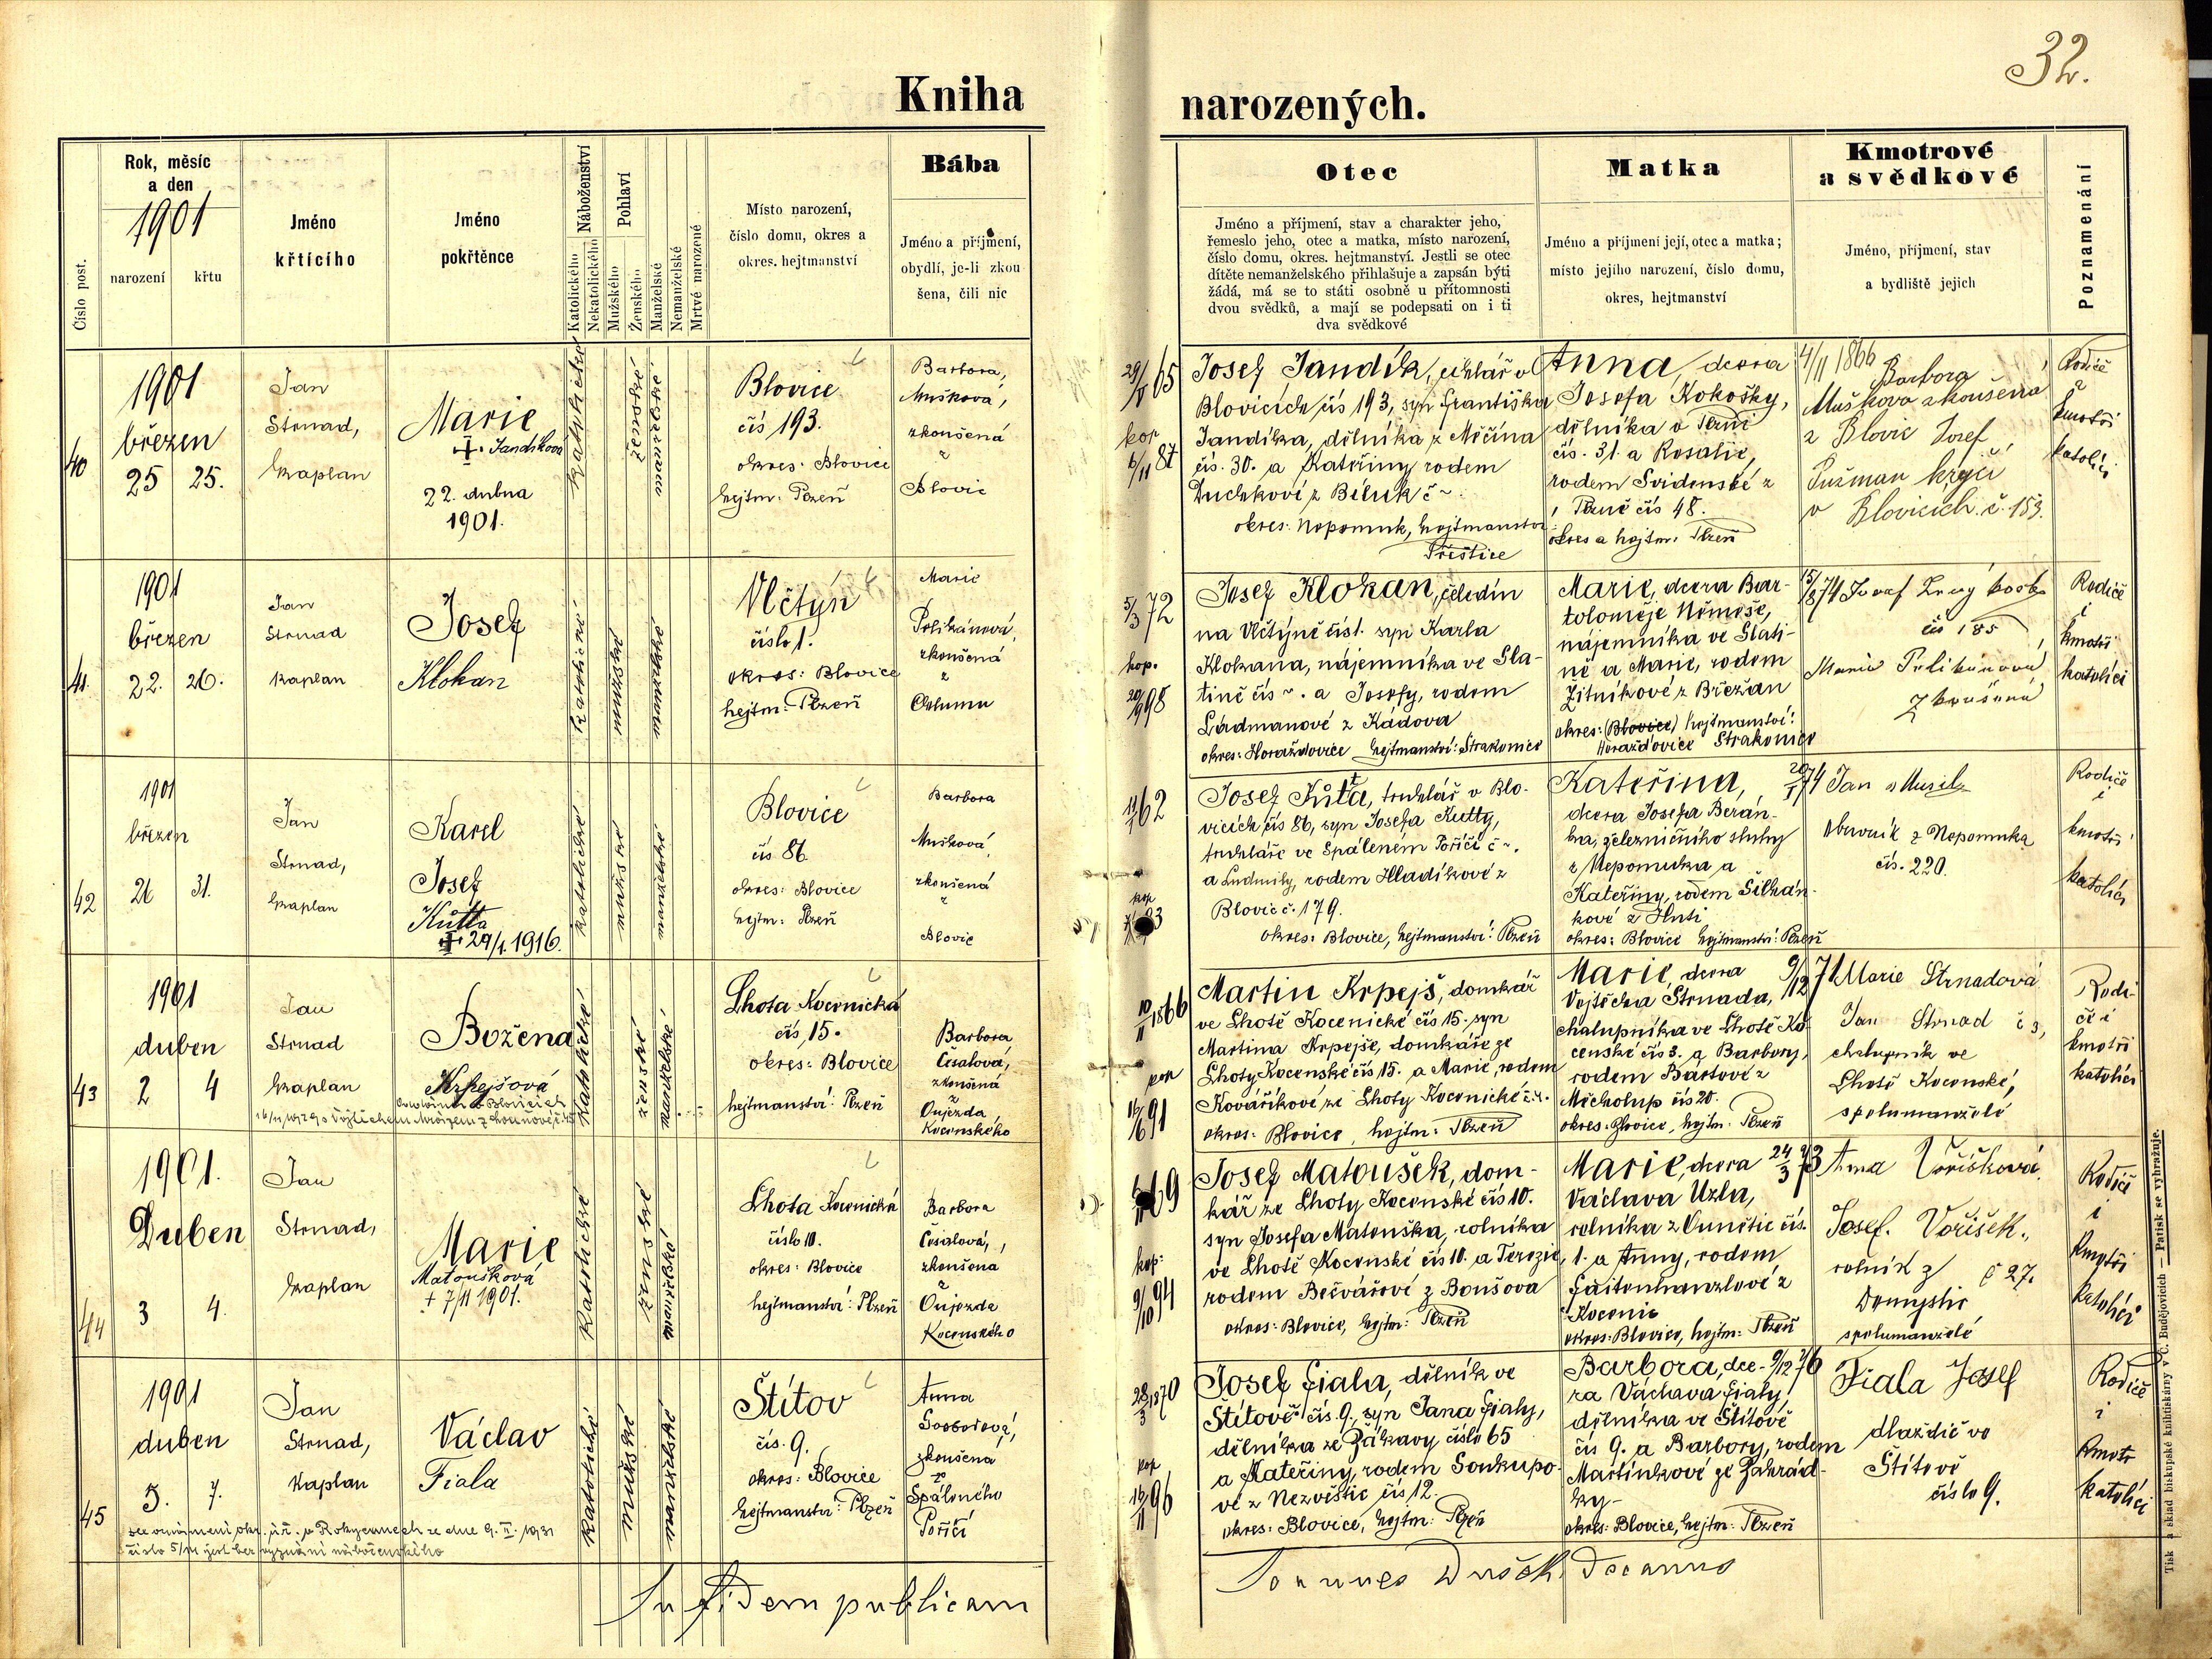 32.
Kniha narozených.
Číslo post.
Rok, měsíc
a den
1901
narození
křtu
Jméno
křtícího
Jméno
pokřtěnce
Náboženství
Katolického
Nekatolického
Pohlaví
Mužského
Ženského
Manželské
Nemanželské
Mrtvé narozené
Místo narození,
číslo domu, okres a
okres. hejtmanství
Bába
Jméno a příjmení,
obydlí, je-li zkou
šena, čili nic
Otec
Jméno a příjmení, stav a charakter jeho,
řemeslo jeho, otec a matka, místo narození,
číslo domu, okres. hejtmanství. Jestli se otec
dítěte nemanželského přihlašuje a zapsán býti
žádá, má se to státi osobně u přítomnosti
dvou svědků, a mají se podepsati on i ti
dva svědkové
Matka
Jméno a příjmení její, otec a matka;
místo jejího narození, číslo domu,
okres, hejtmanství
Kmotrové
a svědkové
Jméno, příjmení, stav
a bydliště jejich
Poznamenání
40
1901
březen
25 25.
Jan
Strnad,
kaplan
Marie
+ Jandíková
22. dubna
1901.
katolické
ženské
manželské
Blovice
čís 193.
okres: Blovice
hejtm: Plzeň
Barbora,
Mušková,
zkoušená
z
Blovic
29/V 65
kop
6/11 87
Josef Jandík, v
Blovicích čís 193, syn Františka
Jandíka, dělníka z Měčína
čís. 30. a Kateřiny rodem
Duchkové z Běluk č ~.
okres: Nepomuk, hejtmanství
Přeštice
Anna, dcera
Josefa Kokošky,
dělníka v
čís. 31. a Rosalie,
rodem Svidenské z
čís 48.
okres a hejtm: Plzeň
4/11 1866
Barbora
Mušková zkoušená
z Blovic Josef
Pužman krejčí
v Blovicích. č. 153.
Rodiče
i
kmotři
katolíci
41
1901
březen
22. 26.
Jan
Strnad
kaplan
Josef
Klokan
katolické
mužské
manželské
Vlčtýn
číslo 1.
okres: Blovice
hejtm: Plzeň
Marie
Pelikánová,
zkoušená
z
Chlumu
5/3 72
kop.
20/9 98
Josef Klokan, čeledín
na Vlčtýně čís 1. syn Karla
Klokana, nájemníka ve Sla-
tině čís ~. a Josefy, rodem
Ládmanové z Kádova
okres: Horažďovice hejtmanství: Strakonice
Marie, dcera Bar-
toloměje Němeše,
nájemníka ve Slati-
ně a Marie, rodem
Žitníkové z Břežan
okres: (Blovice) hejtmanství:
Horažďovice Strakonice
15/8 74
čís 185
Marie Pelikánová
zkoušená
Rodiče
i
kmotři
katolíci
42
1901
březen
26 31.
Jan
Strnad,
kaplan
Karel
Josef
Kůtta
+ 29/1. 1916.
katolické
mužské
manželské
Blovice
čís 86.
okres: Blovice
hejtm: Plzeň
Barbora
Mušková,
zkoušená
z
Blovic
62
kop
Josef Kůtta, truhlář v Blo-
vicích čís 86, syn Josefa Kutty,
truhláře ve Spáleném Poříčí č ~.
a Ludmily, rodem Hladíkové z
Blovic č. 179.
okres: Blovice, hejtmanství: Plzeň
Kateřina, 20/1 74
dcera Josefa Berán-
ka, železničního sluhy
z Nepomuka a
Kateřiny, rodem Šilhán-
kové z Huti
okres: Blovice hejtmanství: Plzeň
Jan Musil
obuvník z Nepomuka
čís. 220.
Rodiče
i
kmotři
katolíci
43
1901
duben
2 4
Jan
Strnad
kaplan
Božena
Krpejšová
katolické
ženské
manželské
Lhota Kocenická
čís, 15.
okres: Blovice
hejtmanství: Plzeň
Barbora
Česalová,
zkoušená
z
Oujezda
Kocenského
10/II 1866
kop
91
Martin Krpejš, domkář
ve Lhotě Kocenické čís 15. syn
Martina Krpejše, domkáře ze
Lhoty Kocenské čís 15. a Marie, rodem
Kovaříkové ze Lhoty Kocenické č ~.
okres: Blovice, hejtm: Plzeň
Marie, dcera 9/12 71
Vojtěcha Strnada,
chalupníka ve Lhotě Ko-
censké čís 3. a Barbory,
rodem Bártové z
Měcholup čís 20.
okres: Blovice, hejtm: Plzeň
Marie Strnadová
Jan Strnad č 3,
chalupník ve
Lhotě Kocenské,
spolumanželé
Rodi-
če i
kmotři
katolíci
44
1901.
Duben
3 4.
Jan
Strnad,
kaplan
Marie
Matoušková
+ 7/11 1901.
katolické
ženské
manželské
Lhota Kocenická
číslo 10.
okres: Blovice
hejtmanství: Plzeň
Barbora
Česalová,
zkoušená
z
Oujezda
Kocenského
69
kop:
9/10 94
Josef Matoušek, dom-
kář ze Lhoty Kocenské čís 10.
syn Josefa Matouška, rolníka
ve Lhotě Kocenské čís 10. a Terezie,
rodem Bečvářové z Boušova
okres: Blovice, hejtm: Plzeň
Marie, dcera 24/3 73
Václava Uzla,
rolníka z Čunětic čís.
1. a Anny, rodem
z
Kocenic
okres: Blovice, hejtm: Plzeň
Anna Voříšková
Josef. Voříšek,
rolník z č 27.
Domyslic
spolumanželé
Rodiče
i
kmotři
katolíci
45
1901
duben
5. 7.
Jan
Strnad,
Kaplan
Václav
Fiala
dle oznámení okr. úř. v Rokycanech ze dne 9. II. 1931
číslo 5/11 jest bez vyznání náboženského
katolické
mužské
manželské
Štítov
čís. 9.
okres: Blovice
hejtmanství: Plzeň
Anna
Svobodová,
zkoušená
ze
Spáleného
Poříčí
28/3 1870
kop
16/11 96
Josef Fiala, dělník ve
Štítově čís. 9., syn Jana Fialy,
dělníka ze Žákavy číslo 65
a Kateřiny, rodem Soukupo-
vé z Nezvěstic čís 12.
okres: Blovice, hejtm: Plzeň
Barbora, dce- 9/12 76
ra Václava Fialy,
dělníka ve Štítově
čís 9. a Barbory, rodem
Martínkové ze Zahrád-
ky-
okres: Blovice, hejtm: Plzeň
Fiala Josef
dlaždič ve
Štítově
číslo 9.
Rodiče
i
kmotr
katolíci
In fidem publicam
Joannes Dušek, Decanus
Tisk a sklad biskupské knihtiskárny v Č. Budějovicích — Patisk se vyhražuje.